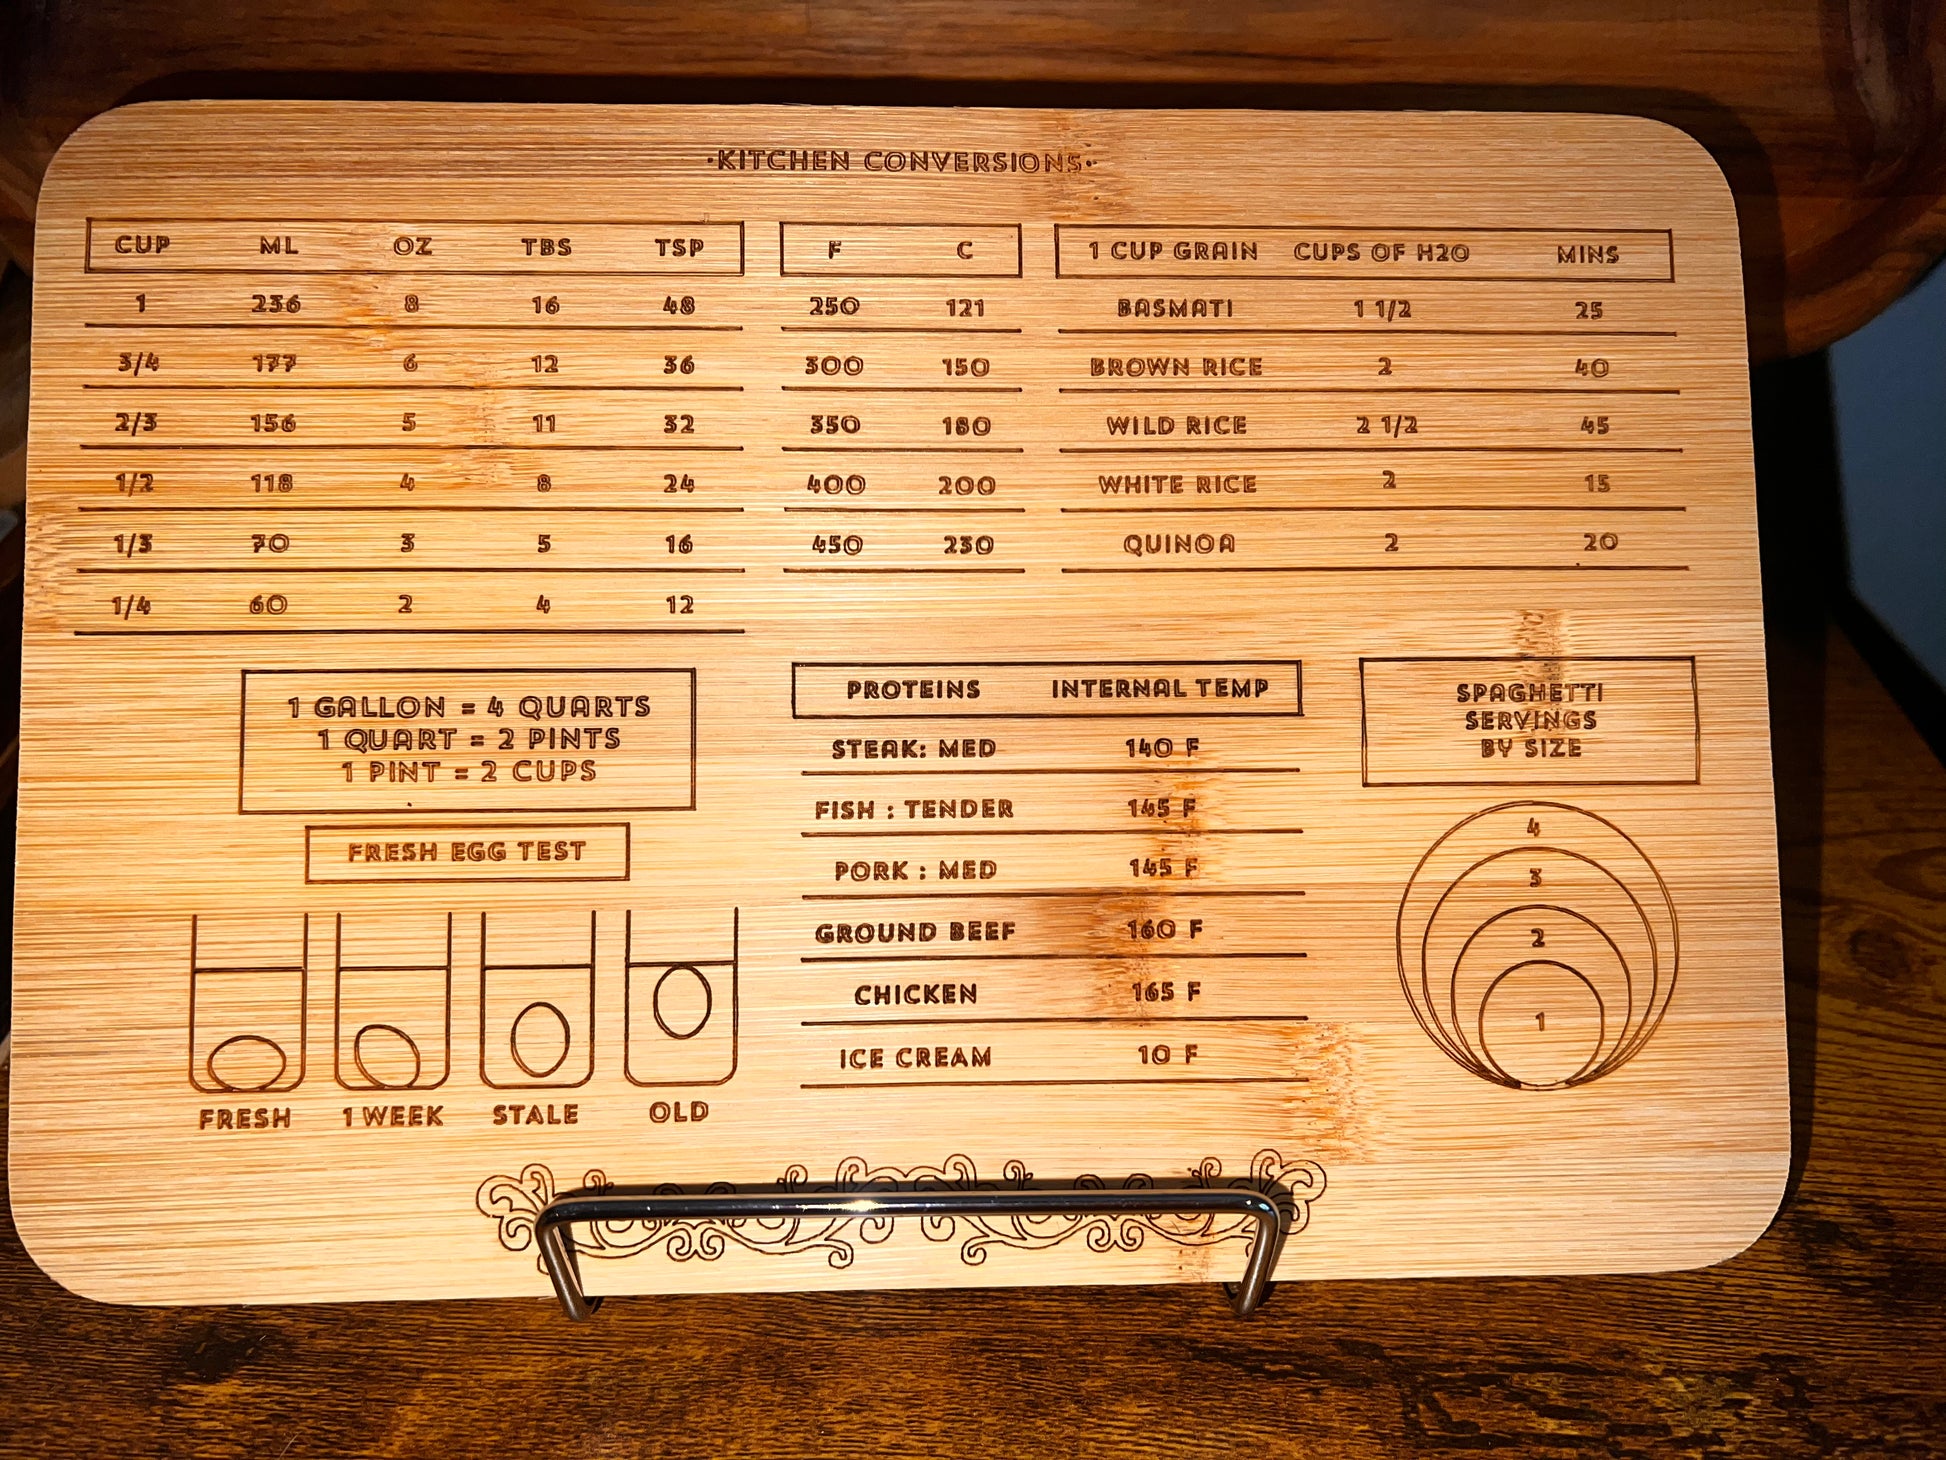 ·KITCHEN CONVERSIONS·
CUP ML OZ TBS TSP
1 236 8 16 48
3/4 177 6 12 36
2/3 156 5 11 32
1/2 118 4 8 24
1/3 70 3 5 16
1/4 60 2 4 12
F C
250 121
300 150
350 180
400 200
450 230
1 CUP GRAIN CUPS OF H2O MINS
BASMATI 1 1/2 25
BROWN RICE 2 40
WILD RICE 2 1/2 45
WHITE RICE 2 15
QUINOA 2 20
1 GALLON = 4 QUARTS
1 QUART = 2 PINTS
1 PINT = 2 CUPS
FRESH EGG TEST
FRESH 1 WEEK STALE OLD
PROTEINS INTERNAL TEMP
STEAK: MED 140 F
FISH : TENDER 145 F
PORK : MED 145 F
GROUND BEEF 160 F
CHICKEN 165 F
ICE CREAM 10 F
SPAGHETTI
SERVINGS
BY SIZE
4
3
2
1